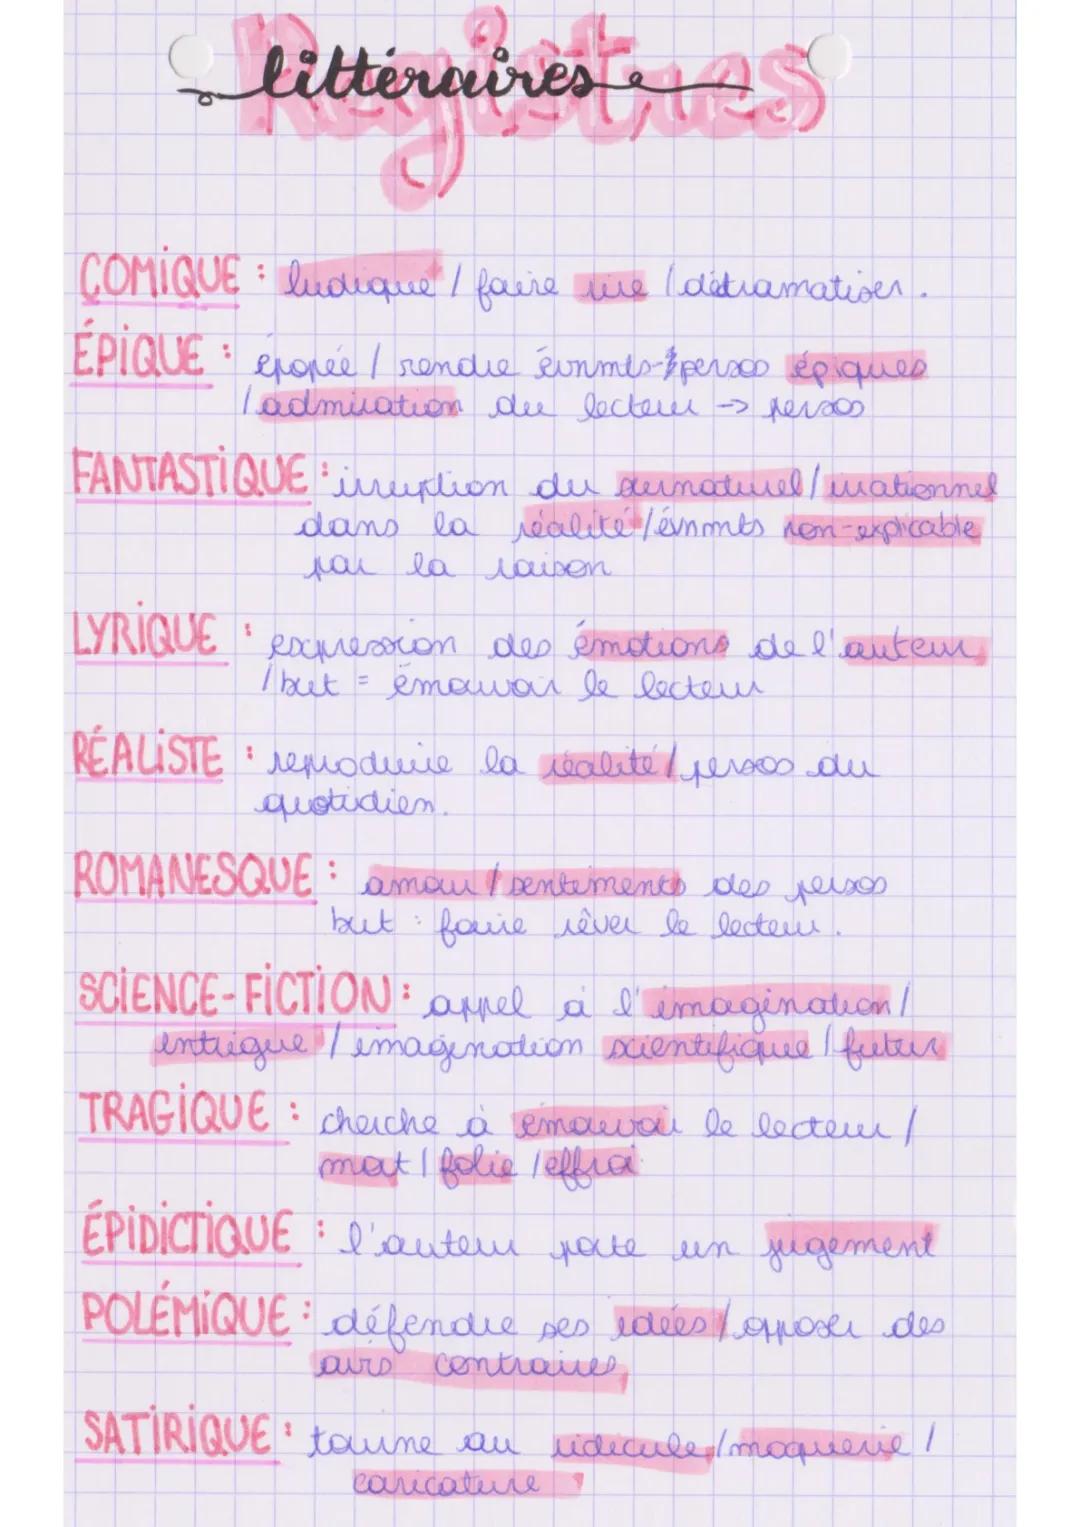 Registres
littéraires
COMIQUE : ludique / faire rire / dédramatiser.
ÉPIQUE : épopée / rendre évnmts-persos épiques
/ admiration du lecteur → persos
FANTASTIQUE : irruption du surnaturel / irrationnel
dans la réalité / évnmts non-explicable
par la raison
LYRIQUE : expression des émotions de l'auteur
/ but = émouvoir le lecteur
RÉALISTE : reproduire la réalité / persos du
quotidien.
ROMANESQUE : amour / sentiments des persos
but : faire rêver le lecteur.
SCIENCE-FICTION : appel à l'imagination /
intrigue / imagination scientifique / futur
TRAGIQUE : cherche à émouvoir le lecteur /
mort / folie / effroi
ÉPIDICTIQUE : l'auteur porte un jugement
POLÉMIQUE : défendre ses idées / opposer des
avis contraires
SATIRIQUE : tourne au ridicule / moquerie /
caricature